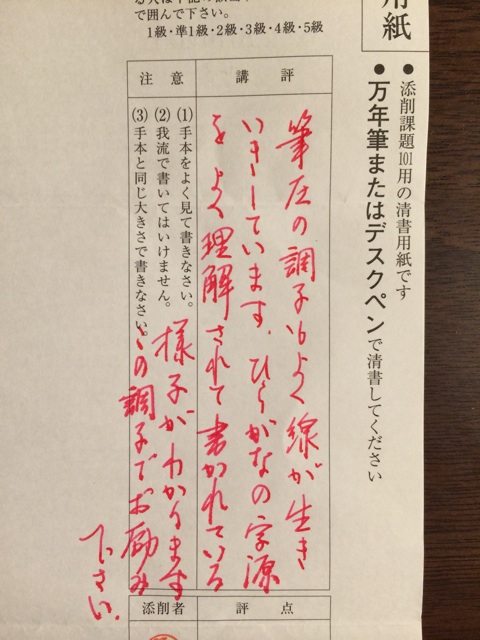 用紙
●添削課題101用の清書用紙です
●万年筆またはデスクペンで清書してください
で囲んで下さい。
1級・準1級・2級・3級・4級・5級
講評
筆圧の調子もよく線が生き
いきしています。ひらがなの字源
をよく理解されて書かれている
様子がわかります
この調子でお励み
下さい。
注意
(1)手本をよく見て書きなさい。
(2)我流で書いてはいけません。
(3)手本と同じ大きさで書きなさい。
評点
添削者